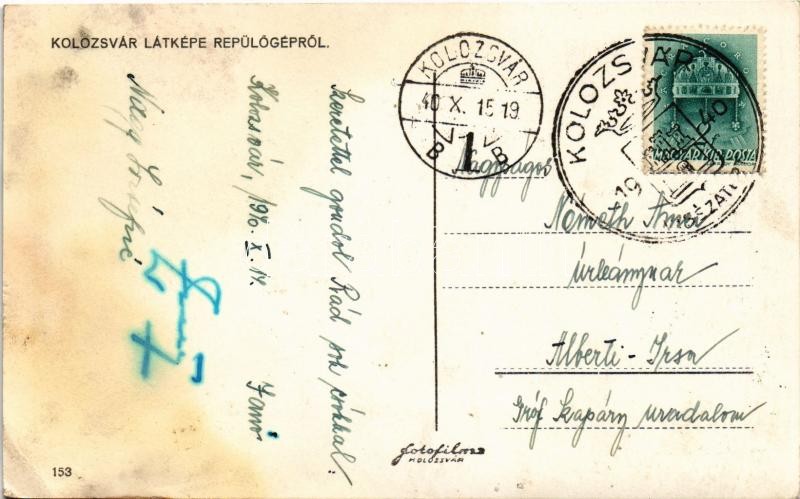 KOLOZSVÁR LÁTKÉPE REPÜLŐGÉPRŐL.
Szeretettel gondol Rád sok csókkal:
Kolozsvár, 1940. X. 14.
Nagy
KOLOZSVÁR
40 X. 15 19
1
KOLOZSVÁR
19 40
MAGYAR KIR. POSTA
Nagyságos
Németh Anna
úrleánynak
Alberti-Irsa
Gróf Szapáry uradalom
fotofilm
KOLOZSVÁR
153